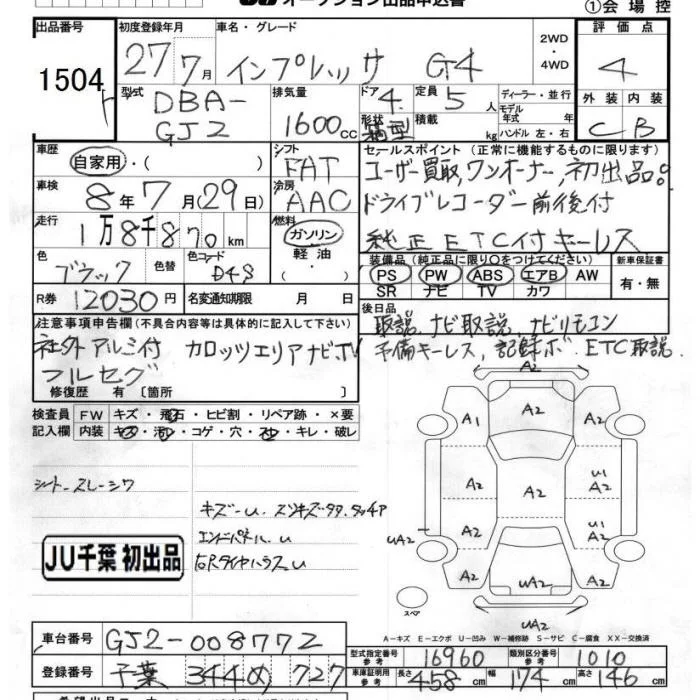 オークション出品申込書
①会場控
出品番号 初度登録年月 車名・グレード 2WD・4WD 評価点
1504 27 7月 インプレッサ G4 4
型式 排気量 ドア 定員 ディーラー・並行 外装 内装
DBA-GJ2 1600cc 4 5人 モデル年式 年式 C B
形状 箱型 積載 kg ハンドル 左・右
車歴 自家用・( ) シフト FAT セールスポイント (正常に機能するものに限ります)
車検 8年7月(29日) 冷房 AAC ユーザー買取,ワンオーナー,初出品。
ドライブレコーダー前後付
走行 1万8千870km 燃料 ガソリン・軽油・( ) 純正ETC付 キーレス
色 ブラック 色替 色コード D4S 装備品(純正品に限り○をつけてください) 新車保証書
PS PW ABS エアB AW 有・無
SR ナビ TV カワ
R券 12030円 名変通知期限 月 日 後日品
取説,ナビ取説,ナビリモコン
予備キーレス,記録ボ,ETC取説
注意事項申告欄(不具合内容等は具体的に記入して下さい)
社外アルミ付 カロッツェリアナビ,TV
フルセグ
修復歴 有 〔箇所 〕
検査員記入欄 FW キズ・飛石・ヒビ割・リペア跡・×要
内装 キズ・汚れ・コゲ・穴・スレ・キレ・破レ
シートスレ・シワ
エンドパネル.u
JU千葉 初出品
A2
A1 A2 A2
A2 A2 U1 A2
A2 U1 A2
UA2 A2 UA2 A2
UA2
スペア
A-キズ E-エクボ U-凹み W-補修跡 S-サビ C-腐食 XX-交換済
車台番号 GJ2-008772 型式指定番号 参考 16960 類別区分番号 参考 1010
登録番号 千葉 344 め 727 車庫証明用 参考 長さ 458cm 幅 174cm 高さ 146cm